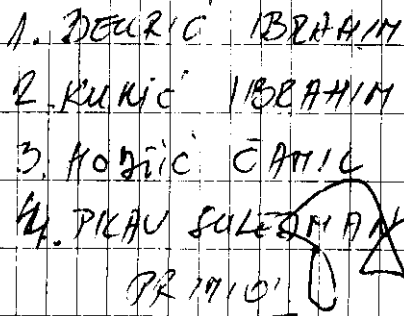 1. DEURIĆ IBRAHIM
2. KURIĆ IBRAHIM
3. HODŽIĆ ĆAMIL
4. PKAV SULEJMAN
PRIMIO!